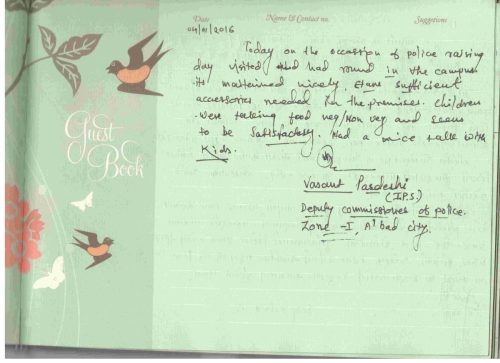 Date Name & Contact no. Suggestions
04/01/2016
Today on the occassion of police raising
day visited and had round in the campus
its maitained nicely. Hane sufficient
accessories needed in the premises. Children
were taking food veg/Non veg and seems
to be satisfactory. Had a nice talk with
Kids.
Guest
Book
Vasant Pardeshi
(I.P.S.)
Deputy commissioner of police.
Zone -I, A'bad city.